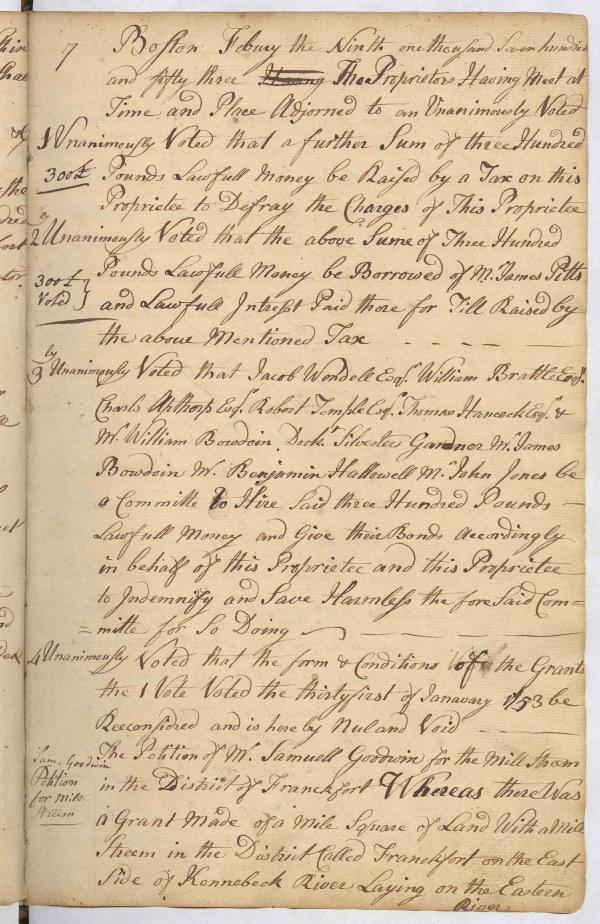 7 Boston Febury the Ninth one thousand Seven hundred
and fifty three The Proprietors Having Meet at
Time and Place Adjorned to an Unanimously Voted
1 Unanimously Voted that a further Sum of three Hundred
300£ Pounds Lawfull Money be Raised by a Tax on this
Proprietee to Defray the Charges of This Proprietee
2 Unanimously Voted that the above Sume of Three Hundred
300£ Voted } Pounds Lawfull Money be Borrowed of Mr. James Pitts
and Lawfull Intresst Paid there for Till Raised by
the above Mentioned Tax
3 Unanimously Voted that Jacob Wendell Esqr. William Brattle Esqr.
Charls Apthorp Esqr. Robert Temple Esqr. Thomas Hancock Esqr. &
Mr. William Bowdoin Doctr. Silvester Gardner Mr. James
Bowdoin Mr. Benjamin Hallowell Mr. John Jones be
a Committe to Hire Said three Hundred Pounds
Lawfull Money and Give their Bonds Accordingly
in behalf of this Proprietee and this Proprietee
to Indemnify and Save Harmless the fore Said Com=
=mitte for So Doing
4 Unanimously Voted that the form & Conditions of the Grants
the 1 Vote Voted the thirtyfirst of Janauary 1753 be
Reeconsidred and is here by Nul and Void
Sam: Goodwin Petition for Mile Streem
The Petition of Mr. Samuell Goodwin for the Mill Streem
in the District of Franckfort Whereas there Was
a Grant Made of a Mile Square of Land With a Mill
Streem in the District Called Franckfort on the East
Side of Kennebeck River Laying on the Eastern
River